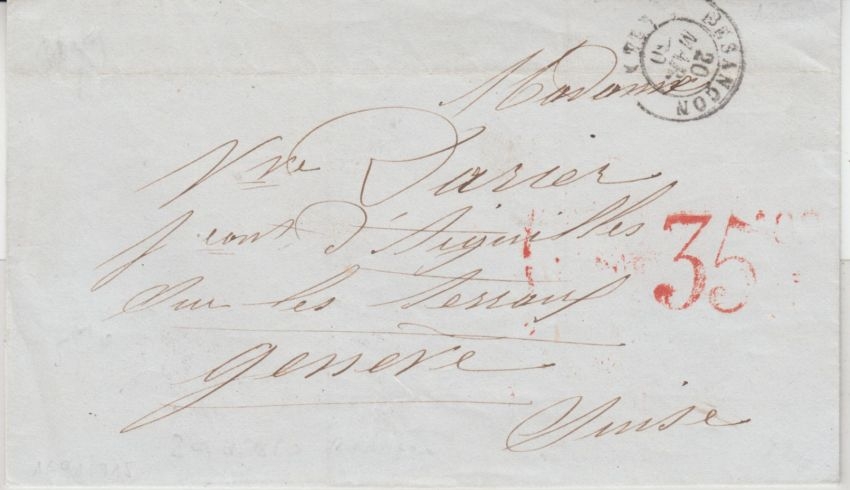 BESANÇON
20
MARS
60
Madame
Vve Darier
f cant d'Aiguilles
Sur les terraux
genève
Suise
35